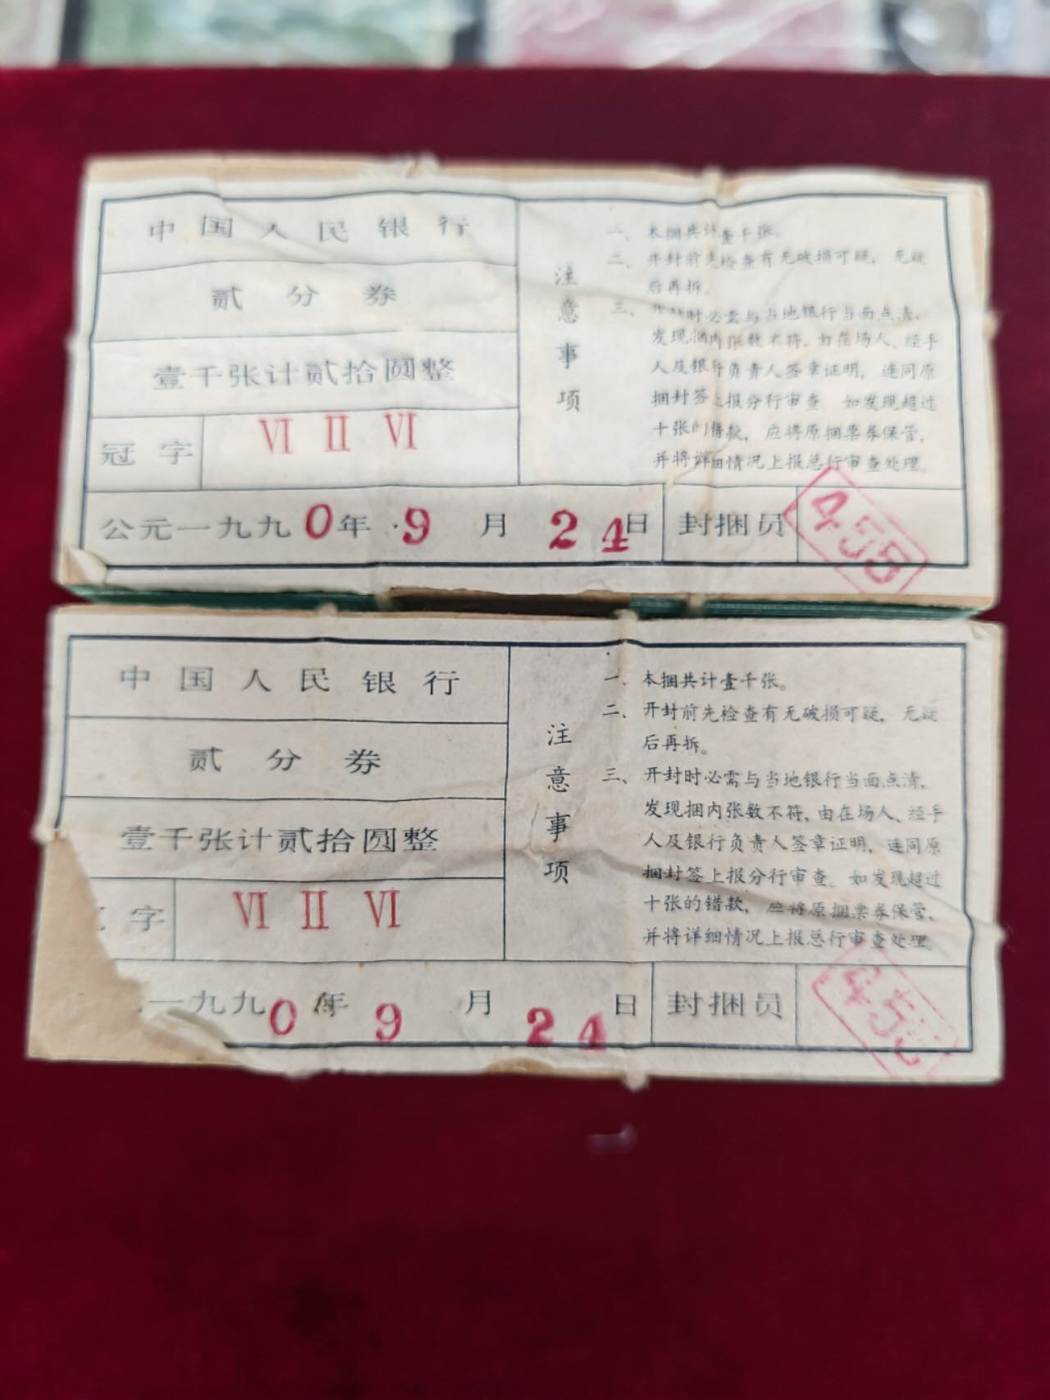 中国人民银行
贰分券
壹千张计贰拾圆整
冠字 VI II VI
公元一九九0年 9月24日 封捆员 455
注意事项
一、本捆共计壹千张。
二、开封前先检查有无破损可疑，无疑
后再拆。
三、开封时必需与当地银行当面点清，
发现捆内张数不符，由在场人、经手
人及银行负责人签章证明，连同原
捆封签上报分行审查。如发现超过
十张的错款，应将原捆票券保管，
并将详细情况上报总行审查处理。
中国人民银行
贰分券
壹千张计贰拾圆整
字 VI II VI
一九九0年 9月24日 封捆员 455
注意事项
一、本捆共计壹千张。
二、开封前先检查有无破损可疑，无疑
后再拆。
三、开封时必需与当地银行当面点清，
发现捆内张数不符，由在场人、经手
人及银行负责人签章证明，连同原
捆封签上报分行审查。如发现超过
十张的错款，应将原捆票券保管，
并将详细情况上报总行审查处理。